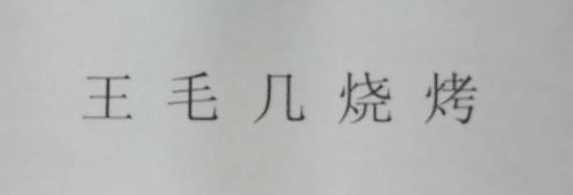 王毛几烧烤